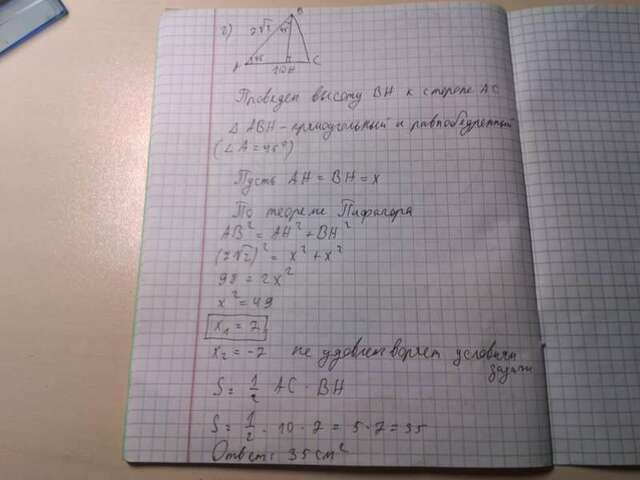 г)
B
7√2
45
A
45
10
H
C
Проведем высоту BH к стороне AC
△ ABH - прямоугольный и равнобедренный
(∠A = 45°)
Пусть AH = BH = x
По теореме Пифагора
AB² = AH² + BH²
(7√2)² = x² + x²
98 = 2x²
x² = 49
x₁ = 7
x₂ = -7 не удовлетворяет условиям
задачи
S = 1/2 AC · BH
S = 1/2 · 10 · 7 = 5 · 7 = 35
Ответ: 35 см²